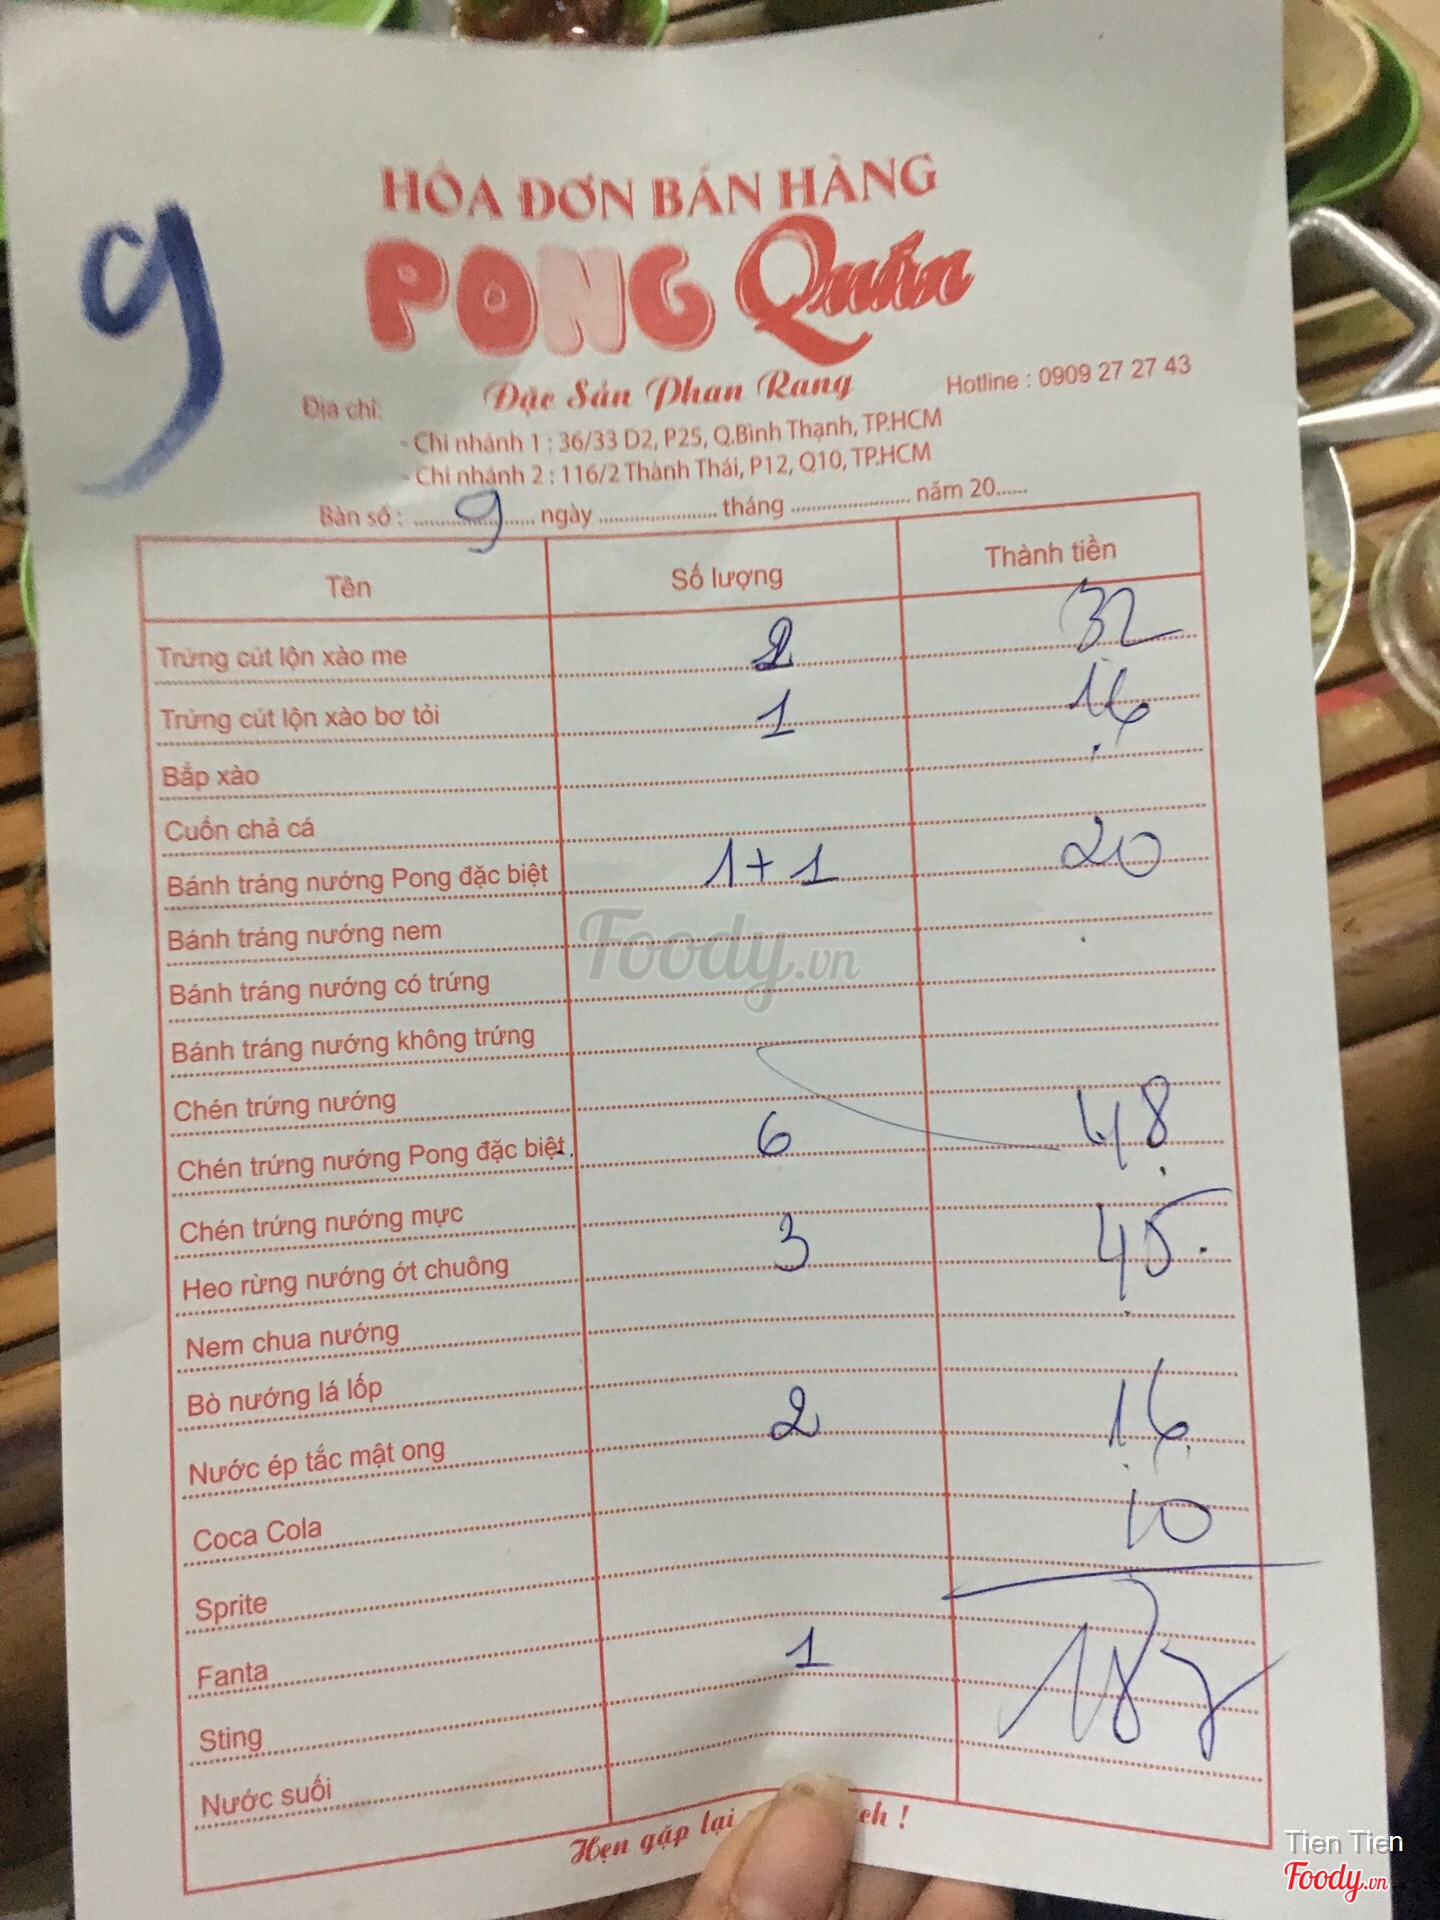 9
HÓA ĐƠN BÁN HÀNG
PONG Quán
Đặc Sản Phan Rang
Địa chỉ: Hotline : 0909 27 27 43
- Chi nhánh 1 : 36/33 D2, P25, Q.Bình Thạnh, TP.HCM
- Chi nhánh 2 : 116/2 Thành Thái, P12, Q10, TP.HCM
Bàn số : 9 ngày tháng năm 20
Tên Số lượng Thành tiền
Trứng cút lộn xào me 2 32
Trứng cút lộn xào bơ tỏi 1 16
Bắp xào
Cuốn chả cá
Bánh tráng nướng Pong đặc biệt 1+1 20
Bánh tráng nướng nem
Bánh tráng nướng có trứng
Bánh tráng nướng không trứng
Chén trứng nướng
Chén trứng nướng Pong đặc biệt 6 48
Chén trứng nướng mực
Heo rừng nướng ớt chuông 3 45
Nem chua nướng
Bò nướng lá lốp
Nước ép tắc mật ong 2 16
Coca Cola
10
Sprite
Fanta
Sting 1 187
Nước suối
Hẹn gặp lại
Foody.vn
Tien Tien
Foody.vn